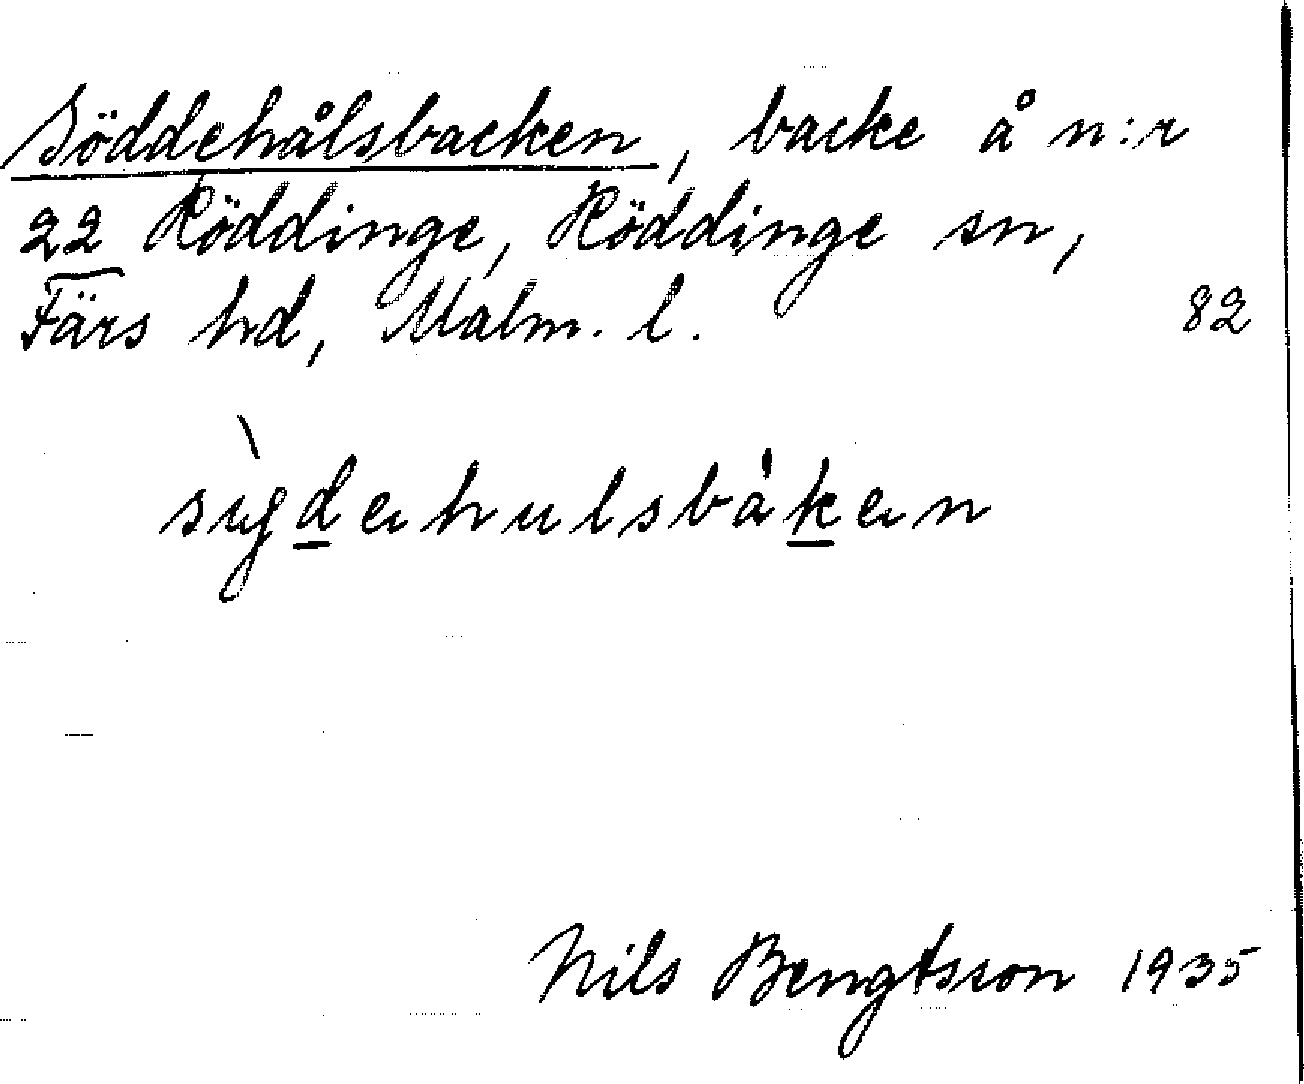 Söddehålsbacken, backe å n:r
22 Röddinge, Röddinge sn,
Färs hd, Malm. l. 82
Nils Bengtsson 1935